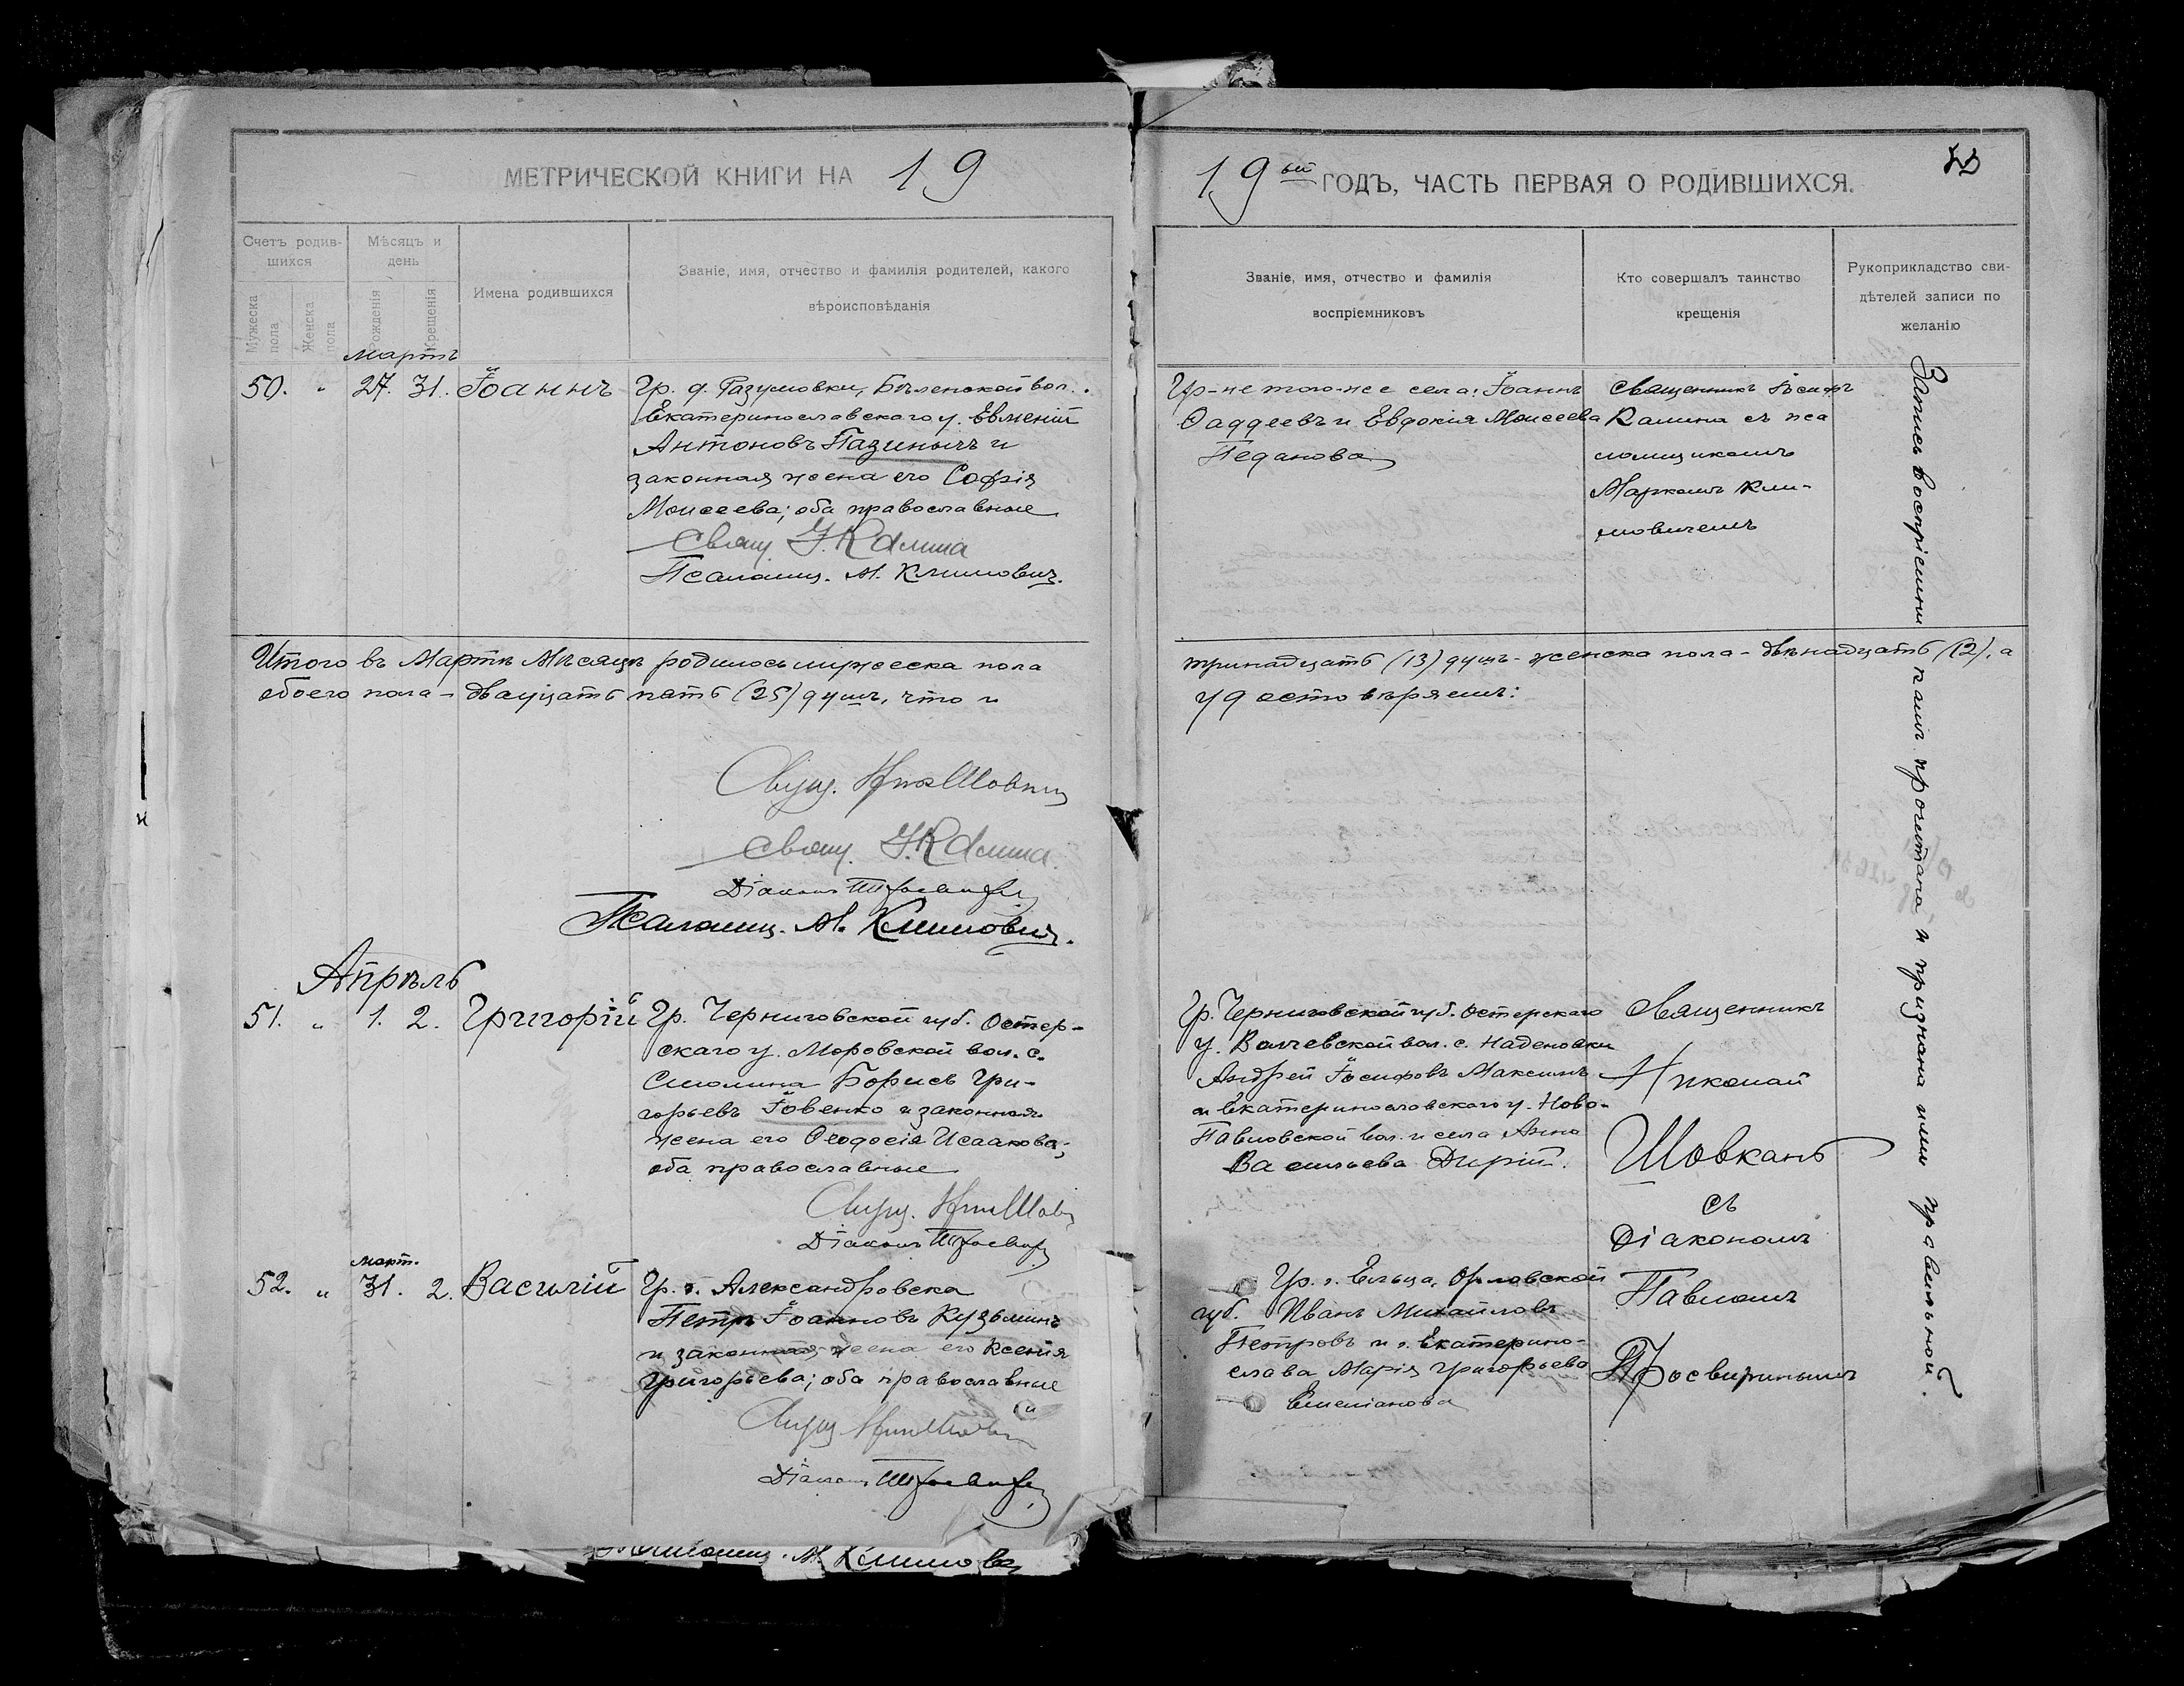 МЕТРИЧЕСКОЙ КНИГИ НА 19
Счетъ родив-
шихся
Мѣсяцъ и
день
Имена родившихся
Званіе, имя, отчество и фамилія родителей, какого
вѣроисповѣданія
Мужеска
пола
Женска
пола
Рожденія
Крещенія
Мартъ
50. " 27. 31. Іоаннъ
Гр. д. Разумовки, Бѣленской вол.
Екатеринославского у. Евменій
Антоновъ Пазинычъ и
законная жена его Софія
Моисеева; оба православные
Свящ. І. Калина
Псаломщ. М. Климович.
Итого въ Мартѣ Мѣсяцѣ родилось мужеска пола
обоего пола - двадцать пять (25) душъ, что и
Свящ.
Свящ. І. Калина
Діаконъ
Псаломщ. М. Климович.
Апрѣль
51. " 1. 2. Григорій
Гр. Черниговской губ. Остер-
скаго у. Моровской вол. с.
Смолина Борисъ Гри-
горьевъ Іовенко и законная
жена его Ѳеодосія Исаакова;
оба православные
Свящ.
Діаконъ
март.
52. " 31. 2. Василій
Гр. г. Александровска
Петръ Іоанновъ Кузьминъ
и законная жена его Ксенія
Григорьева; оба православные
Свящ.
Діаконъ
Псаломщ. М. Климович
19ый ГОДЪ, ЧАСТЬ ПЕРВАЯ О РОДИВШИХСЯ.
Званіе, имя, отчество и фамилія
воспріемниковъ
Кто совершалъ таинство
крещенія
Рукоприкладство сви-
дѣтелей записи по
желанію
Гр-не того-же села: Іоаннъ
Ѳаддеевъ и Евдокія Моисеева
Педанова
Священникъ Іосифъ
Калина съ пса
ломщикомъ
Маркомъ Кли-
мовичемъ
тринадцать (13) душъ - женска пола - двѣнадцать (12), а
удостовѣряемъ:
Гр. Черниговской губ. Остерскаго
у. вол. с. Наденовки
Андрей Іосифовъ Максимъ
и Екатеринославского у. Ново-
Павловской вол. и села Анна
Васильева Дирій.
Священникъ
Николай
Шовкань
съ
Діакономъ
Павломъ
Просвиринымъ
Гр. г. Ельца, Орловской
губ. Иванъ Михайловъ
Петровъ и г. Екатерино-
слава Марія Григорьева
Емельянова
Запись воспріемникамъ прочитана и признана ими правильной.